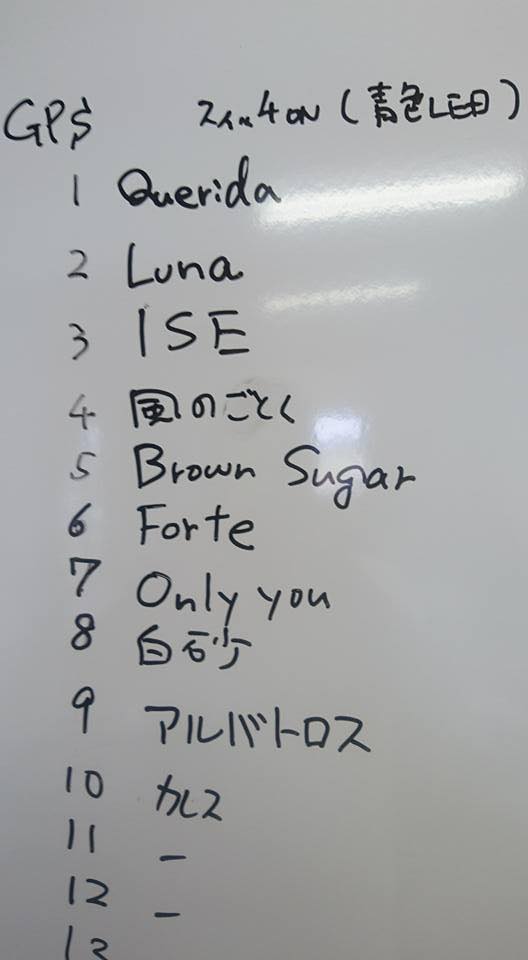 GPS スイッチON (青色LED)
1 Querida
2 Luna
3 ISE
4 風のごとく
5 Brown Sugar
6 Forte
7 Only you
8 白砂
9 アルバトロス
10 カレス
11 ー
12 ー
13